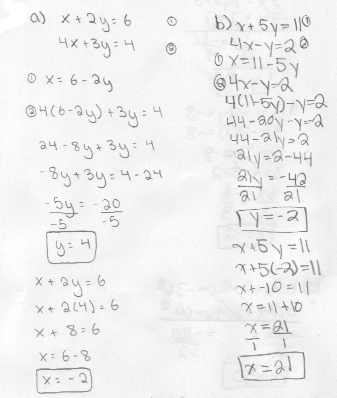 a) x + 2y = 6 ①
4x + 3y = 4 ②
① x = 6 - 2y
② 4(6 - 2y) + 3y = 4
24 - 8y + 3y = 4
-8y + 3y = 4 - 24
-5y = -20
-5 -5
y = 4
x + 2y = 6
x + 2(4) = 6
x + 8 = 6
x = 6 - 8
x = -2
b) x + 5y = 11 ①
4x - y = 2 ②
① x = 11 - 5y
② 4x - y = 2
4(11 - 5y) - y = 2
44 - 20y - y = 2
44 - 21y = 2
21y = 2 - 44
21y = -42
21 21
y = -2
x + 5y = 11
x + 5(-2) = 11
x + -10 = 11
x = 11 + 10
x = 21
1 1
x = 21